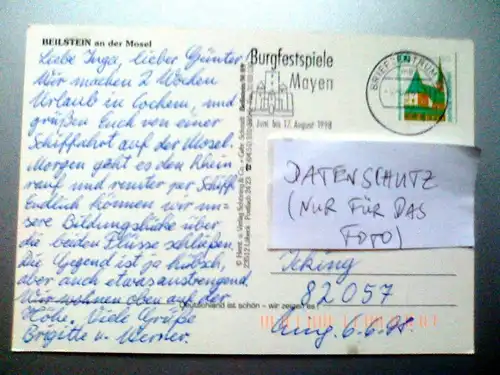 BEILSTEIN an der Mosel
Liebe Inga, lieber Günter,
Wir machen 2 Wochen
Urlaub in Cochem, und
grüßen Euch von einer
Schiffahrt auf der Mosel.
Morgen geht es den Rhein
rauf und runter per Schiff.
Endlich können wir un-
sere Bildungslücke über
die beiden Flüsse schließen.
Die Gegend ist ja hübsch,
aber auch etwas anstrengend.
Wir wohnen oben auf der
Höhe. Viele Grüße
Brigitte u. Werner.
Burgfestspiele
Mayen
Juni bis 17. August 1998
BRIEFZENTRUM
DATENSCHUTZ
(NUR FÜR DAS
FOTO)
Icking
82057
Deutschland ist schön – wir zeigen es!